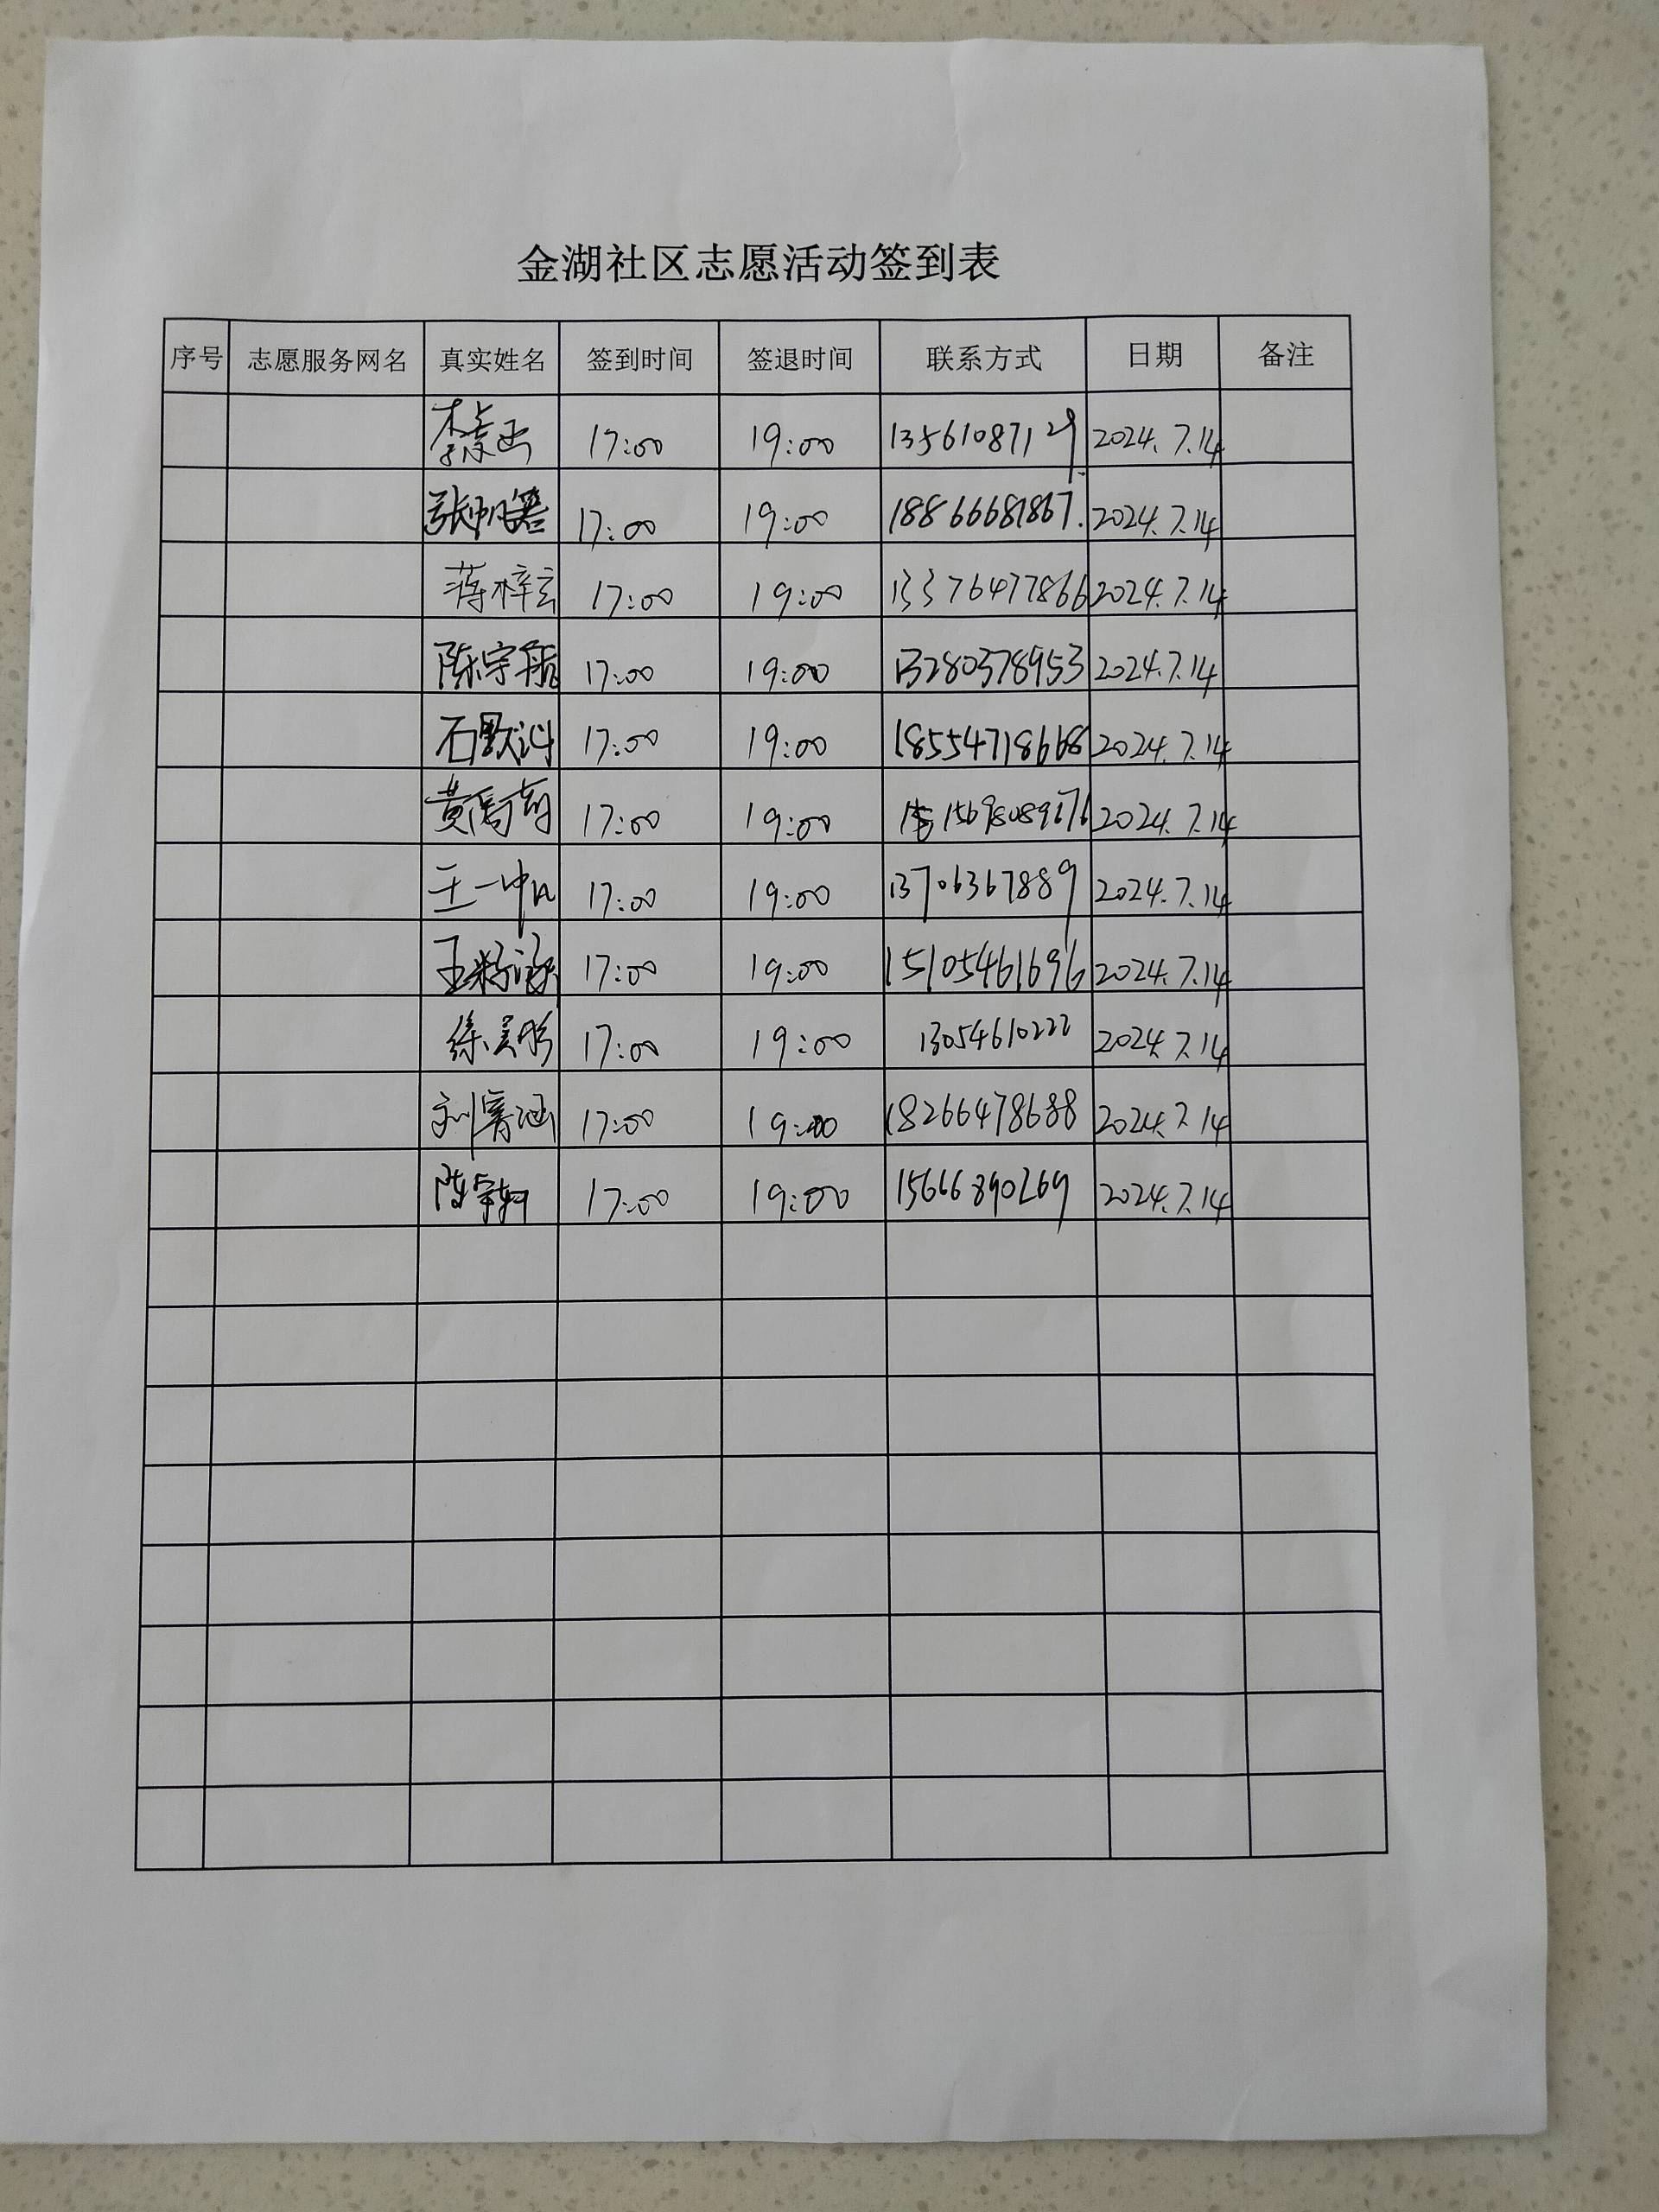 金湖社区志愿活动签到表
序号 志愿服务网名 真实姓名 签到时间 签退时间 联系方式 日期 备注
17:00 19:00 13561087129 2024.7.14
17:00 19:00 18866681867. 2024.7.14
蒋梓玄 17:00 19:00 13376477866 2024.7.14
陈宇航 17:00 19:00 13280378953 2024.7.14
石默 17:00 19:00 18554718668 2024.7.14
黄 17:00 19:00 15698089676 2024.7.14
王一帆 17:00 19:00 13706367889 2024.7.14
王 17:00 19:00 15105461696 2024.7.14
徐昊彤 17:00 19:00 13054610222 2024.7.14
刘 涵 17:00 19:00 18266478688 2024.7.14
陈 轩 17:00 19:00 15666890269 2024.7.14